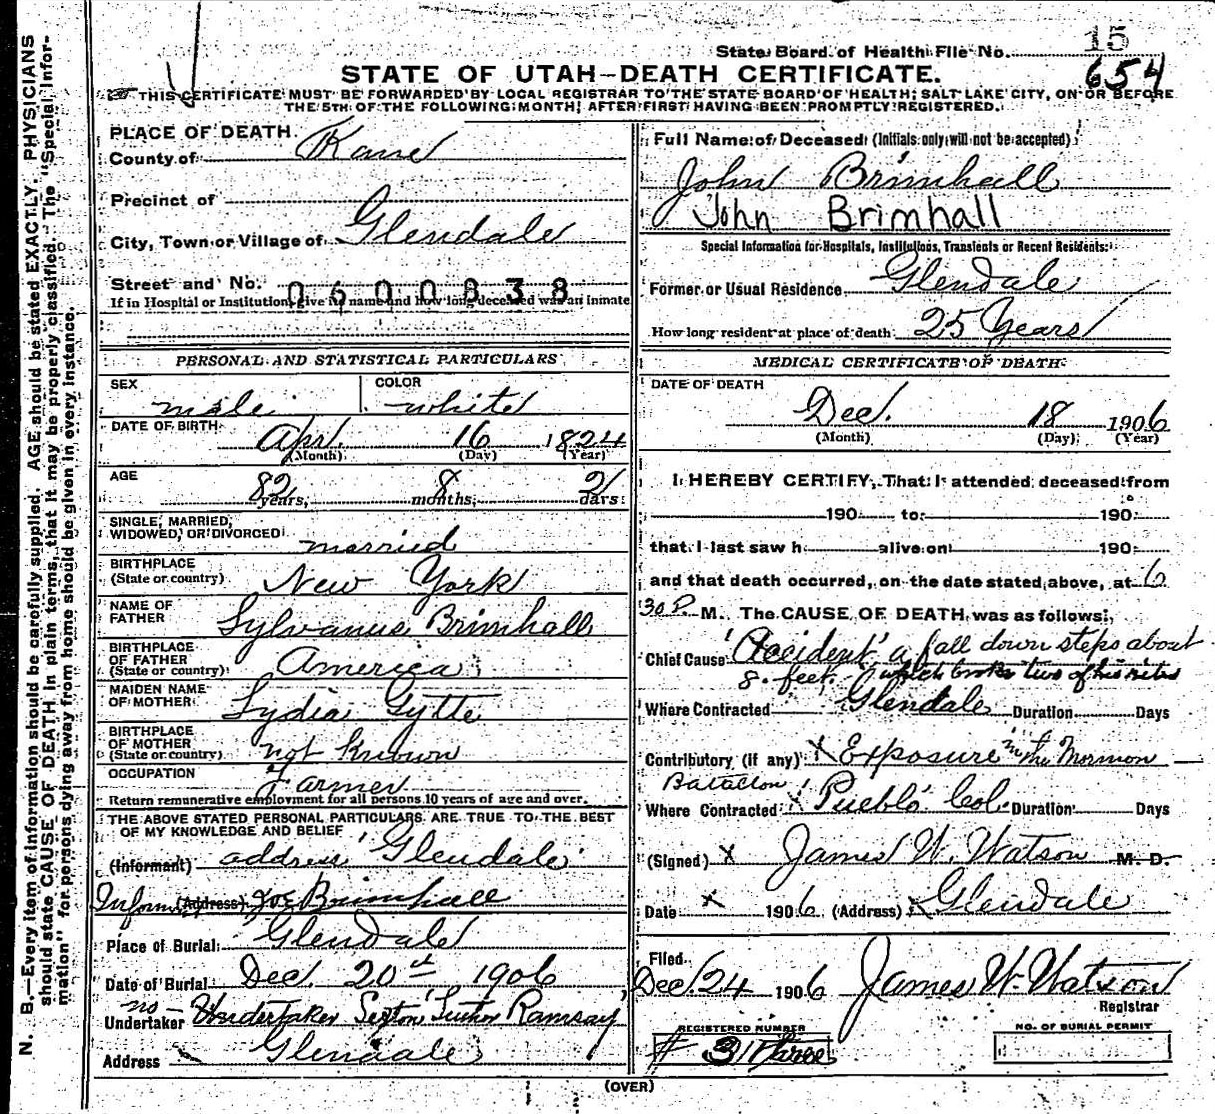 N. B.—Every item of information should be carefully supplied. AGE should be stated EXACTLY. PHYSICIANS
should state CAUSE OF DEATH in plain terms, that it may be properly classified. The "Special Infor-
mation" for persons dying away from home should be given in every instance.
15
State Board of Health File No.
654
STATE OF UTAH—DEATH CERTIFICATE.
THIS CERTIFICATE MUST BE FORWARDED BY LOCAL REGISTRAR TO THE STATE BOARD OF HEALTH, SALT LAKE CITY, ON OR BEFORE
THE 5TH OF THE FOLLOWING MONTH, AFTER FIRST HAVING BEEN PROMPTLY REGISTERED.
PLACE OF DEATH.
County of Kane
Precinct of
City, Town or Village of Glendale
Street and No.
0600838
If in Hospital or Institution, give its name and how long deceased was an inmate
PERSONAL AND STATISTICAL PARTICULARS
SEX male COLOR white
DATE OF BIRTH Apr. 16 1824
(Month) (Day) (Year)
AGE 82 years, 8 months, 2 days.
SINGLE, MARRIED,
WIDOWED, OR DIVORCED married
BIRTHPLACE
(State or country) New York
NAME OF
FATHER Sylvanus Brimhall
BIRTHPLACE
OF FATHER America
(State or country)
MAIDEN NAME
OF MOTHER Lydia Gytte
BIRTHPLACE
OF MOTHER
(State or country) not known
OCCUPATION Farmer
Return remunerative employment for all persons 10 years of age and over.
THE ABOVE STATED PERSONAL PARTICULARS ARE TRUE TO THE BEST
OF MY KNOWLEDGE AND BELIEF
(Informant) address Glendale
(Address) Brimhall
Place of Burial Glendale
Date of Burial Dec. 20th 1906
no
Undertaker Undertaker Sexton Luther Ramsay
Address Glendale
Full Name of Deceased (Initials only will not be accepted)
John Brimhall
John Brimhall
Special Information for Hospitals, Institutions, Transients or Recent Residents:
Former or Usual Residence Glendale
How long resident at place of death 25 Years
MEDICAL CERTIFICATE OF DEATH
DATE OF DEATH
Dec. 18 1906
(Month) (Day) (Year)
I HEREBY CERTIFY, That I attended deceased from
190 to 190
that I last saw h alive on 190
and that death occurred, on the date stated above, at 6
30 P. M. The CAUSE OF DEATH was as follows:
Chief Cause 'Accident' a fall down steps about
8. feet. which broke two of his ribs
Where Contracted Glendale Duration Days
Contributory (if any) x Exposure in the Mormon
Batallion
Where Contracted x Pueblo Col. Duration Days
(Signed) x James W. Watson M. D.
Date x 1906 (Address) x Glendale
Filed
Dec. 24 1906 James W. Watson
Registrar
REGISTERED NUMBER
# 3 Three
NO. OF BURIAL PERMIT
(OVER)